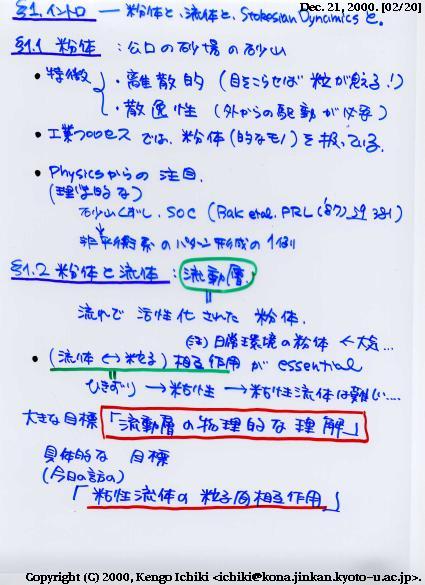 Dec. 21, 2000. [02/20]
§1. イントロ — 粉体と、流体と、Stokesian Dynamics と。
§1.1 粉体 : 公口の砂場の砂山
• 特徴 • 離散的 (目をこらせば 粒が見える!)
• 散逸性 (外からの駆動が必要)
• 工業プロセス では、粉体(的なモノ)を扱っている。
• Physicsからの注目.
(理学的な)
砂山くずし. SOC (Bak et al. PRL ('87) 59 381)
非平衡系のパターン形成の1例
§1.2 粉体と流体 : 流動層.
流れで 活性化された 粉体.
日常環境の粉体 ← 大気...
• (流体 ↔ 粒子) 相互作用 が essential
ひきずり → 粘性 → 粘性流体は難しい....
大きな目標 「流動層の物理的な理解」
具体的な 目標
(今日の話の)
「粘性流体の 粒子間相互作用.」
Copyright (C) 2000, Kengo Ichiki <ichiki@kona.jinkan.kyoto-u.ac.jp>.